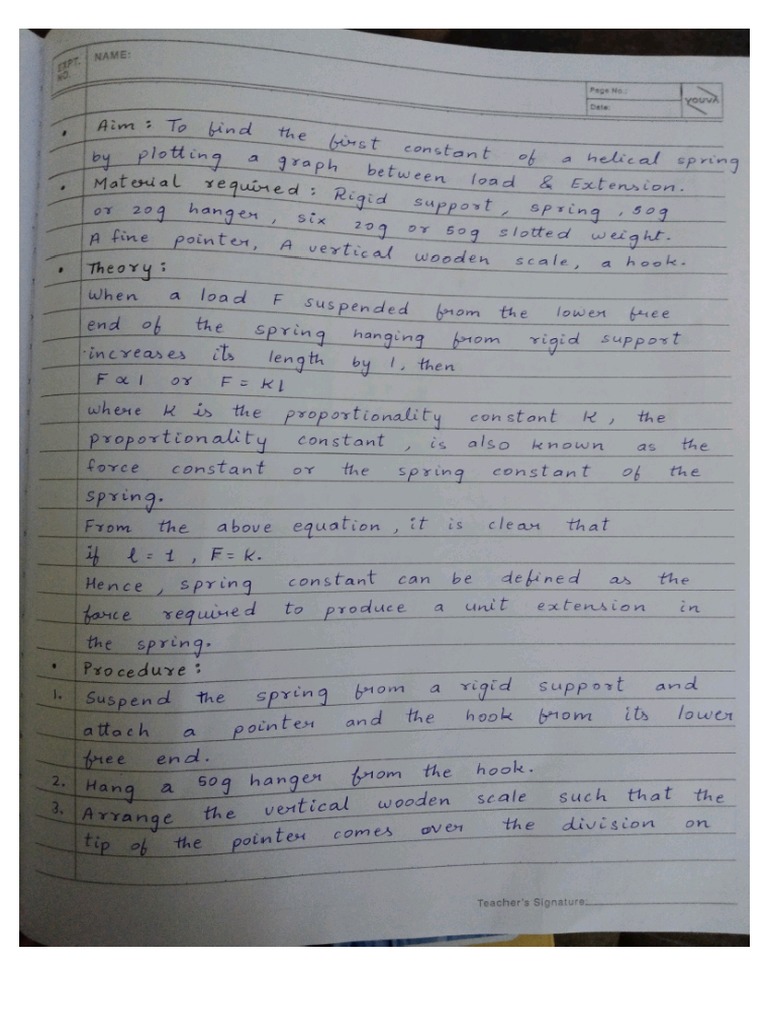 EXPT. NO.
NAME:
Page No.:
Date:
YOUVA
• Aim : To find the first constant of a helical spring
by plotting a graph between load & Extension.
• Material required : Rigid support, spring, 50g
or 20g hanger, six 20g or 50g slotted weight.
A fine pointer, A vertical wooden scale, a hook.
• Theory :
When a load F suspended from the lower free
end of the spring hanging from rigid support
increases its length by l, then
F ∝ l or F = Kl
where K is the proportionality constant K, the
proportionality constant, is also known as the
force constant or the spring constant of the
spring.
From the above equation, it is clear that
if l = 1, F = k.
Hence, spring constant can be defined as the
force required to produce a unit extension in
the spring.
• Procedure :
1. Suspend the spring from a rigid support and
attach a pointer and the hook from its lower
free end.
2. Hang a 50g hanger from the hook.
3. Arrange the vertical wooden scale such that the
tip of the pointer comes over the division on
Teacher's Signature: